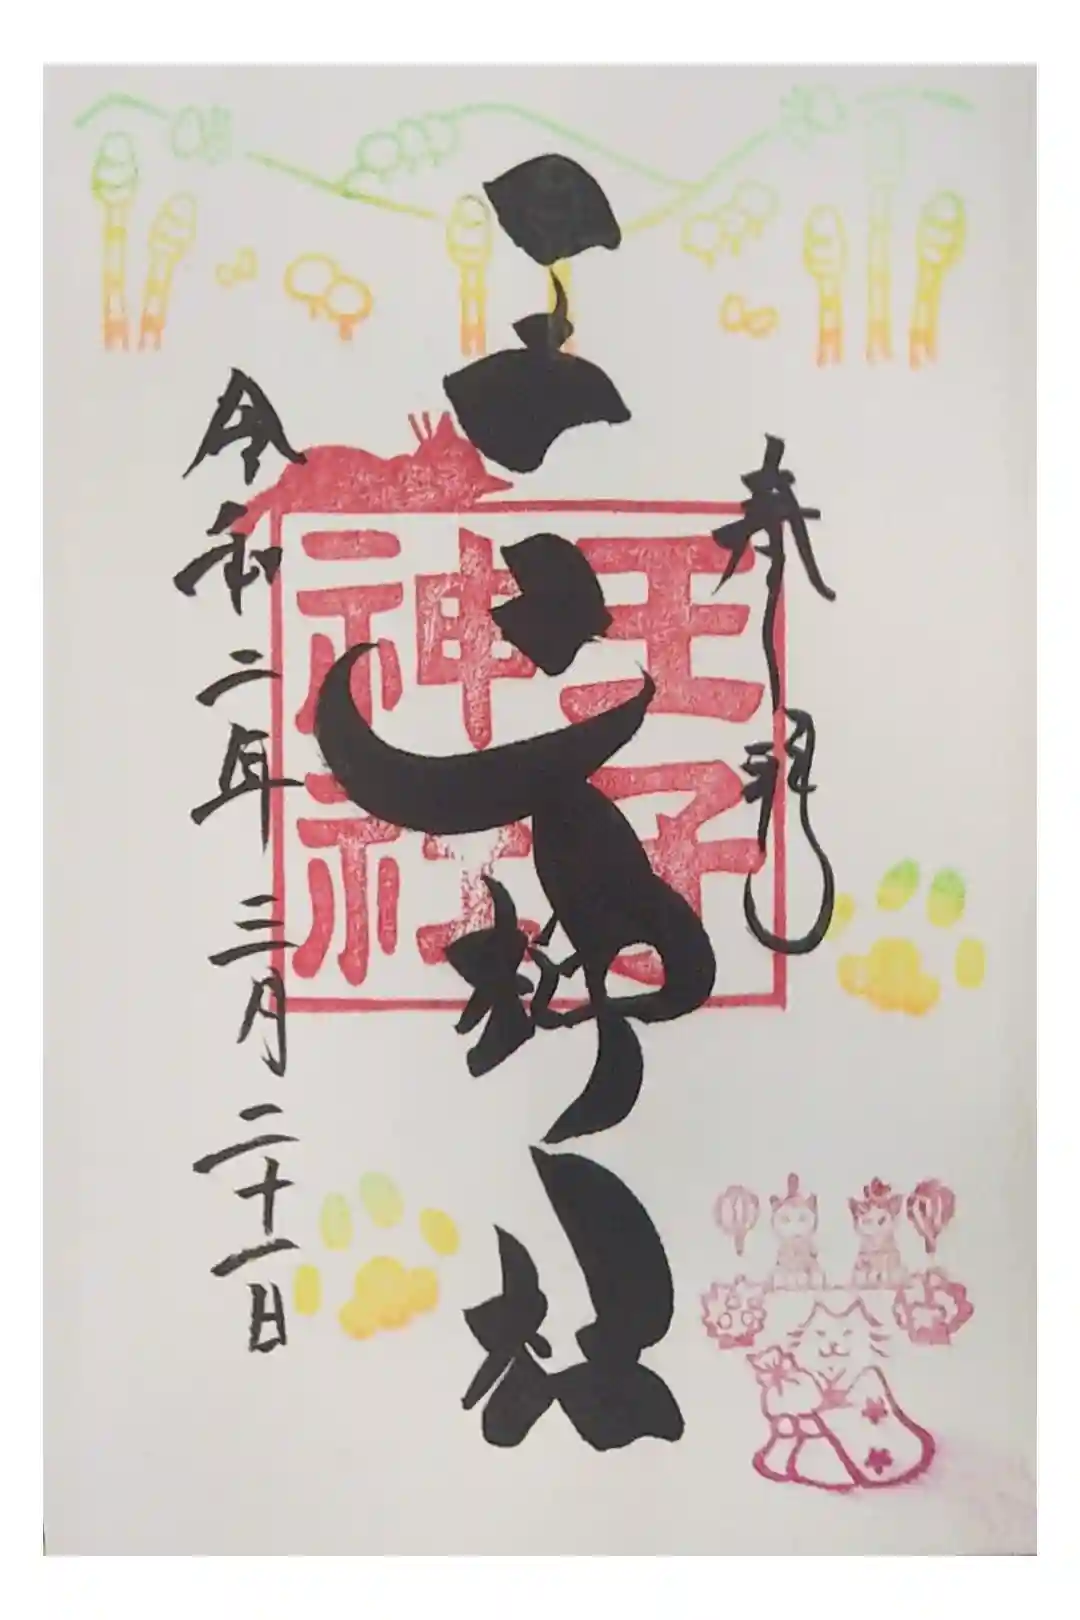 奉拝
王子神社
王子
神社
令和二年三月二十一日